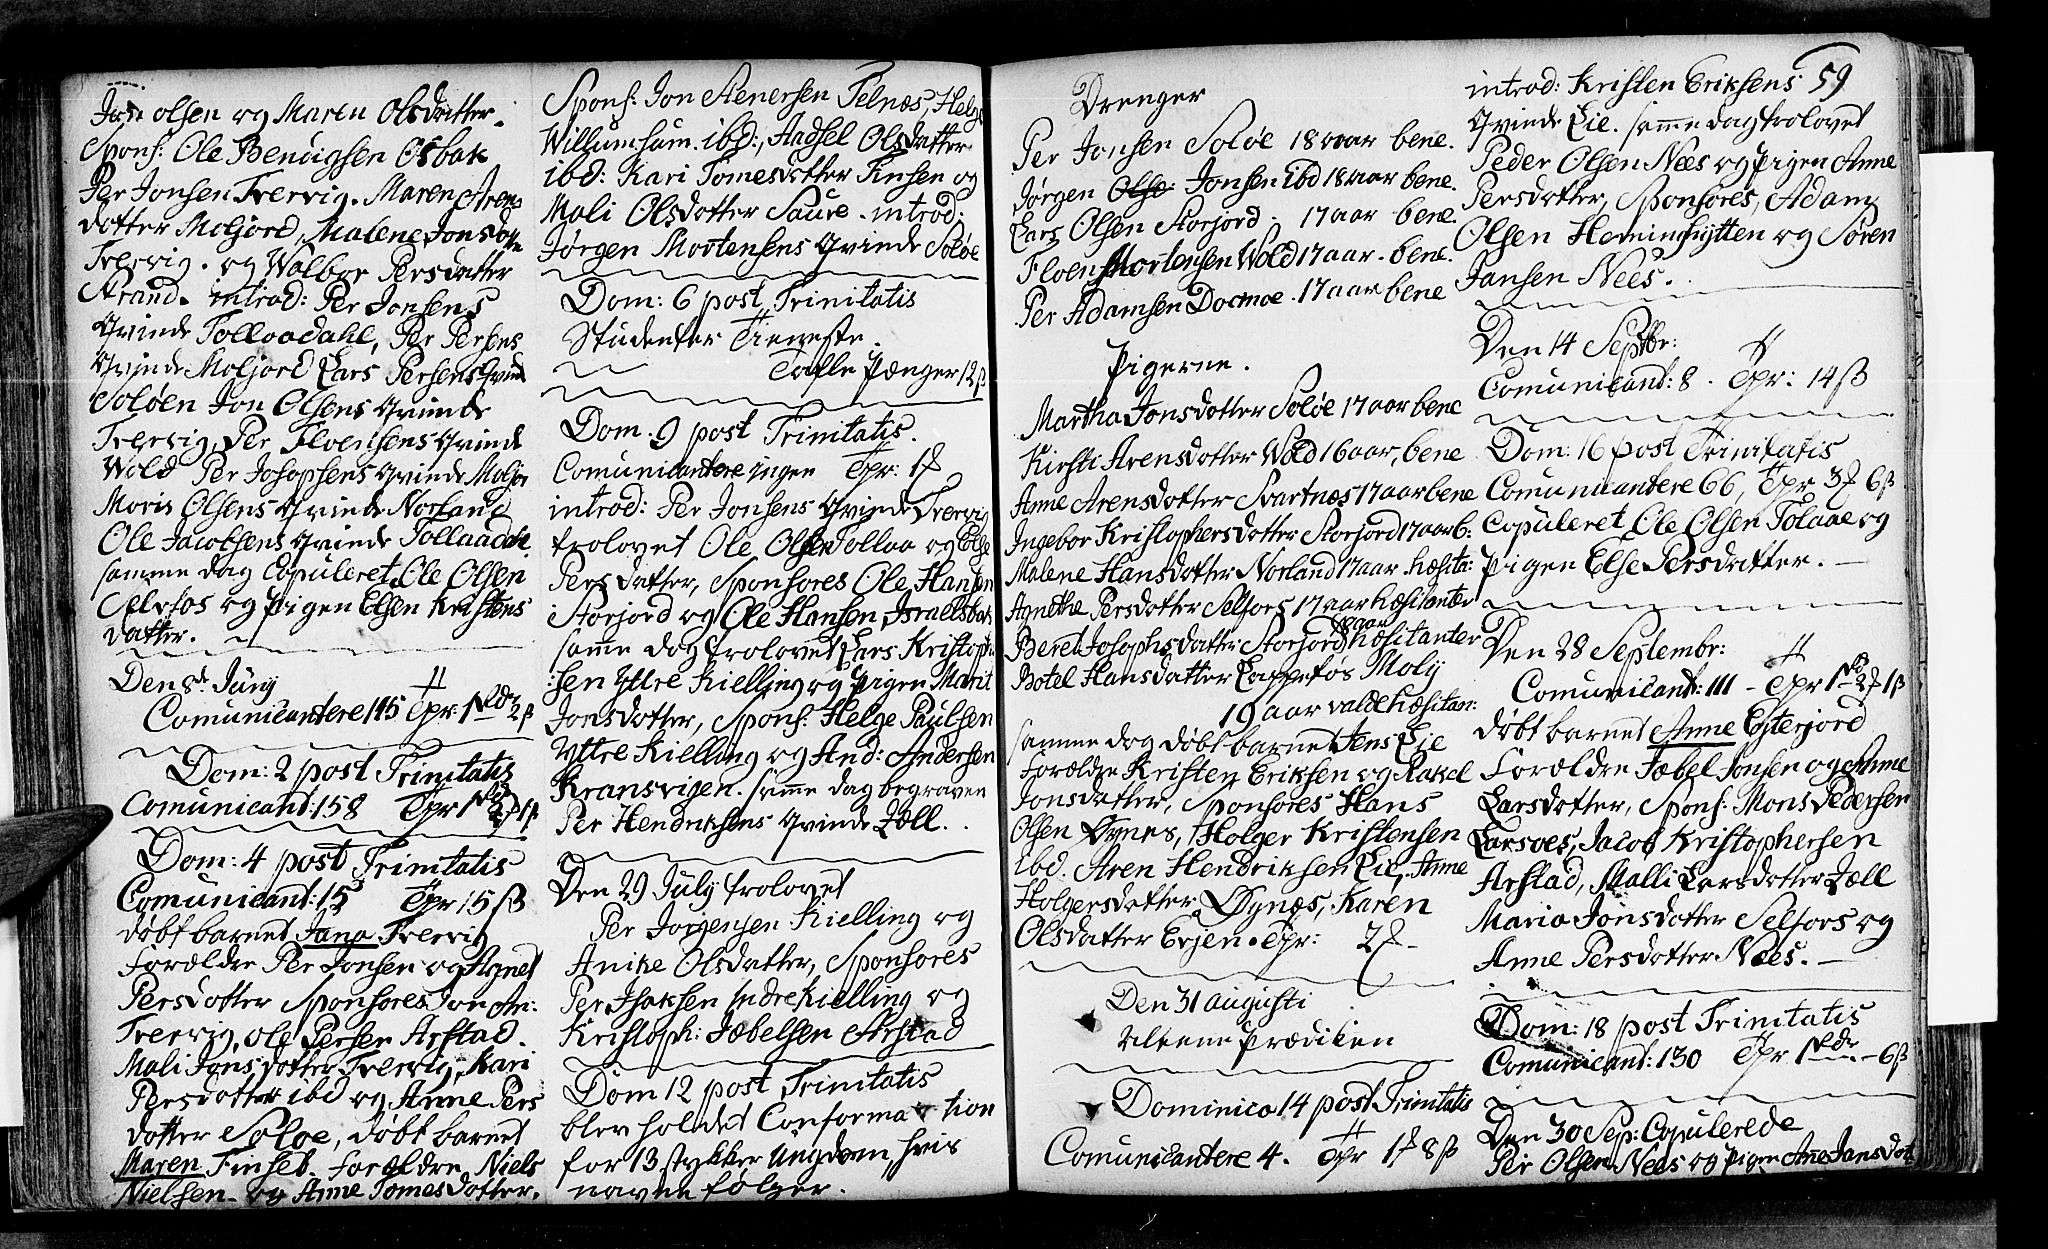 Jon olsen og Maren Olsdatter.
Spons: Ole Bendigsen Osbak
Per Jonsen Trervig. Maren Arens
datter Moljord, Malene Jonsdatter
Trervig. og Wolbor Persdatter
Strand. introd: Per Jonsens
Qvinde Tollaadahl, Per Persens
Qvinde Moljord Lars Persens Qvinde
Soløen Jon Olsens Qvinde
Trervig, Per Floensens Qvinde
Wold Per Josephsens Qvinde Moljor
Moris Olsens Qvinde Norland
Ole Jacobsens Qvinde Tollaadahl
samme dag Copuleret Ole Olsen
Selfos og Pigen Elsen Kristens
datter.
Den 8de Juny
Comunicantere 115 Tpr: 1 Rdr 2 ß
Dom: 2 post Trinitatis
Comunicant: 158 Tpr 1
Dom: 4 post Trinitatis
Comunicant: 15 Tpr 15 ß
døbt barnet Jana Trervig
Forældre Per Jonsen og Agnet
Persdatter Sponsores Jon An:
Trervig, Ole Persen Arstad.
Mali Jonsdatter Trervig, Kari
Persdatter ibd og Anne Pers
datter Soløe, døbt barnet
Maren Finset. Forældre Niels
Nielsen. og Anne Tomesdatter.
Spons: Jon Stenersen Telnæs, Helge
Willumsum. ibd:, Aadsel Olsdatter
ibd: Kari Tomesdatter Finsen og
Mali Olsdatter Saure. introd:
Jørgen Mortensens Qvinde Soløe
Dom: 6 post Trinitatis
Studenter Tieneste.
Tafle Pænger 12 ß
Dom. 9 post Trinitatis.
Comunicantere ingen Tpr: 1
introd: Per Jonsens Qvinde Trervig
trolovet Ole Olsen Tollaa og Else
Persdatter, Sponsores Ole Hansen
Storjord og Ole Hansen Israelsbak
samme dag trolovet Lars Kristoph
:sen Yttre Kielling og Pigen Marit
Jonsdatter, Spons: Helge Paulsen
Yttre Kielling og And: Andersen
Kransvigen. samme dag begraven
Per Hendriksens Qvinde Læll.
Den 29 July trolovet
Per Jorgensen Kielling og
Anike Olsdatter, Sponsores
Per Isaksen Indre Kielling og
Kristoph: Jæbelsen Arstad
Dom 12 post Trinitatis
blev holdet Conformation
for 13 stykker Ungdom, hvis
navne følger.
Drenger
Per Jonsen Soløe 18 aar bene.
Jørgen Olse: Jonsen ibd 18 aar bene.
Lars Olsen Storjord. 17 aar bene
Floen Mortensen Wold 17 aar. bene.
Per Adamsen Docmoe. 17 aar bene
Pigerne.
Martha Jonsdotter Soløe 17 aar bene
Kirsti Arensdotter Wold 16 aar, bene
Anne Arensdotter Svartnæs 17 aar bene
Ingebor Kristophersdotter Storjord 17 aar b:
Malene Hansdotter Norland 17 aar hæsita:
Agnethe Persdotter Selfors 17 aar hæsitanter
Beret Josophsdatter Storjord 18 aar hæsitanter
Botel Hansdatter Lappefos Moly
19 aar valde hæsitan:
samme dag døbt barnet Jens Eje
Forældre Kristen Eriksen og Rakel
Jonsdatter, Sponsores Hans
Olsen Øynes, Holger Kristensen
ibd. Aren Hendriksen Eie, Anne
Holgersdatter Øynæs, Karen
Olsdatter Evjen. Tpr: 2
Den 31 augusti
Aleene Prædiken
Dominica 14 post Trinitatis
Comunicantere 4. Tpr 1 8 ß
59
introd: Kristen Eriksens
Qvinde Eie. samme dag trolovet
Peder Olsen Nees og Pigen Anne
Persdatter, Sponsores, Adam
Olsen Heminghytten og Søren
Jansen Nees.
Den 14 Septbr:
Comunicant: 8. Tpr: 14 ß
Dom: 16 post Trinitatis
Comunicantere 66, Tpr 3 6 ß
Copuleret Ole Olsen Tolaae og
Pigen Else Persdatter.
Den 28 Septembr:
Comunicant: 111 - Tpr 1 2 1 ß
døbt barnet Anne Eyterjord
Forældre Jæbel Jonsen og Anne
Larsdotter, Spons: Mons Pedersen
Larsoes, Jacob Kristophersen
Arstad, Malli Larsdotter Læll
Maria Jonsdotter Selfors og
Anne Persdotter Nees.
Dom: 18 post Trinitatis
Comunicant: 130 Tpr 1 Rdr - 6 ß
Den 30 Sep: Copulerede
Per Olsen Nees og Pigen Ane Jansdot